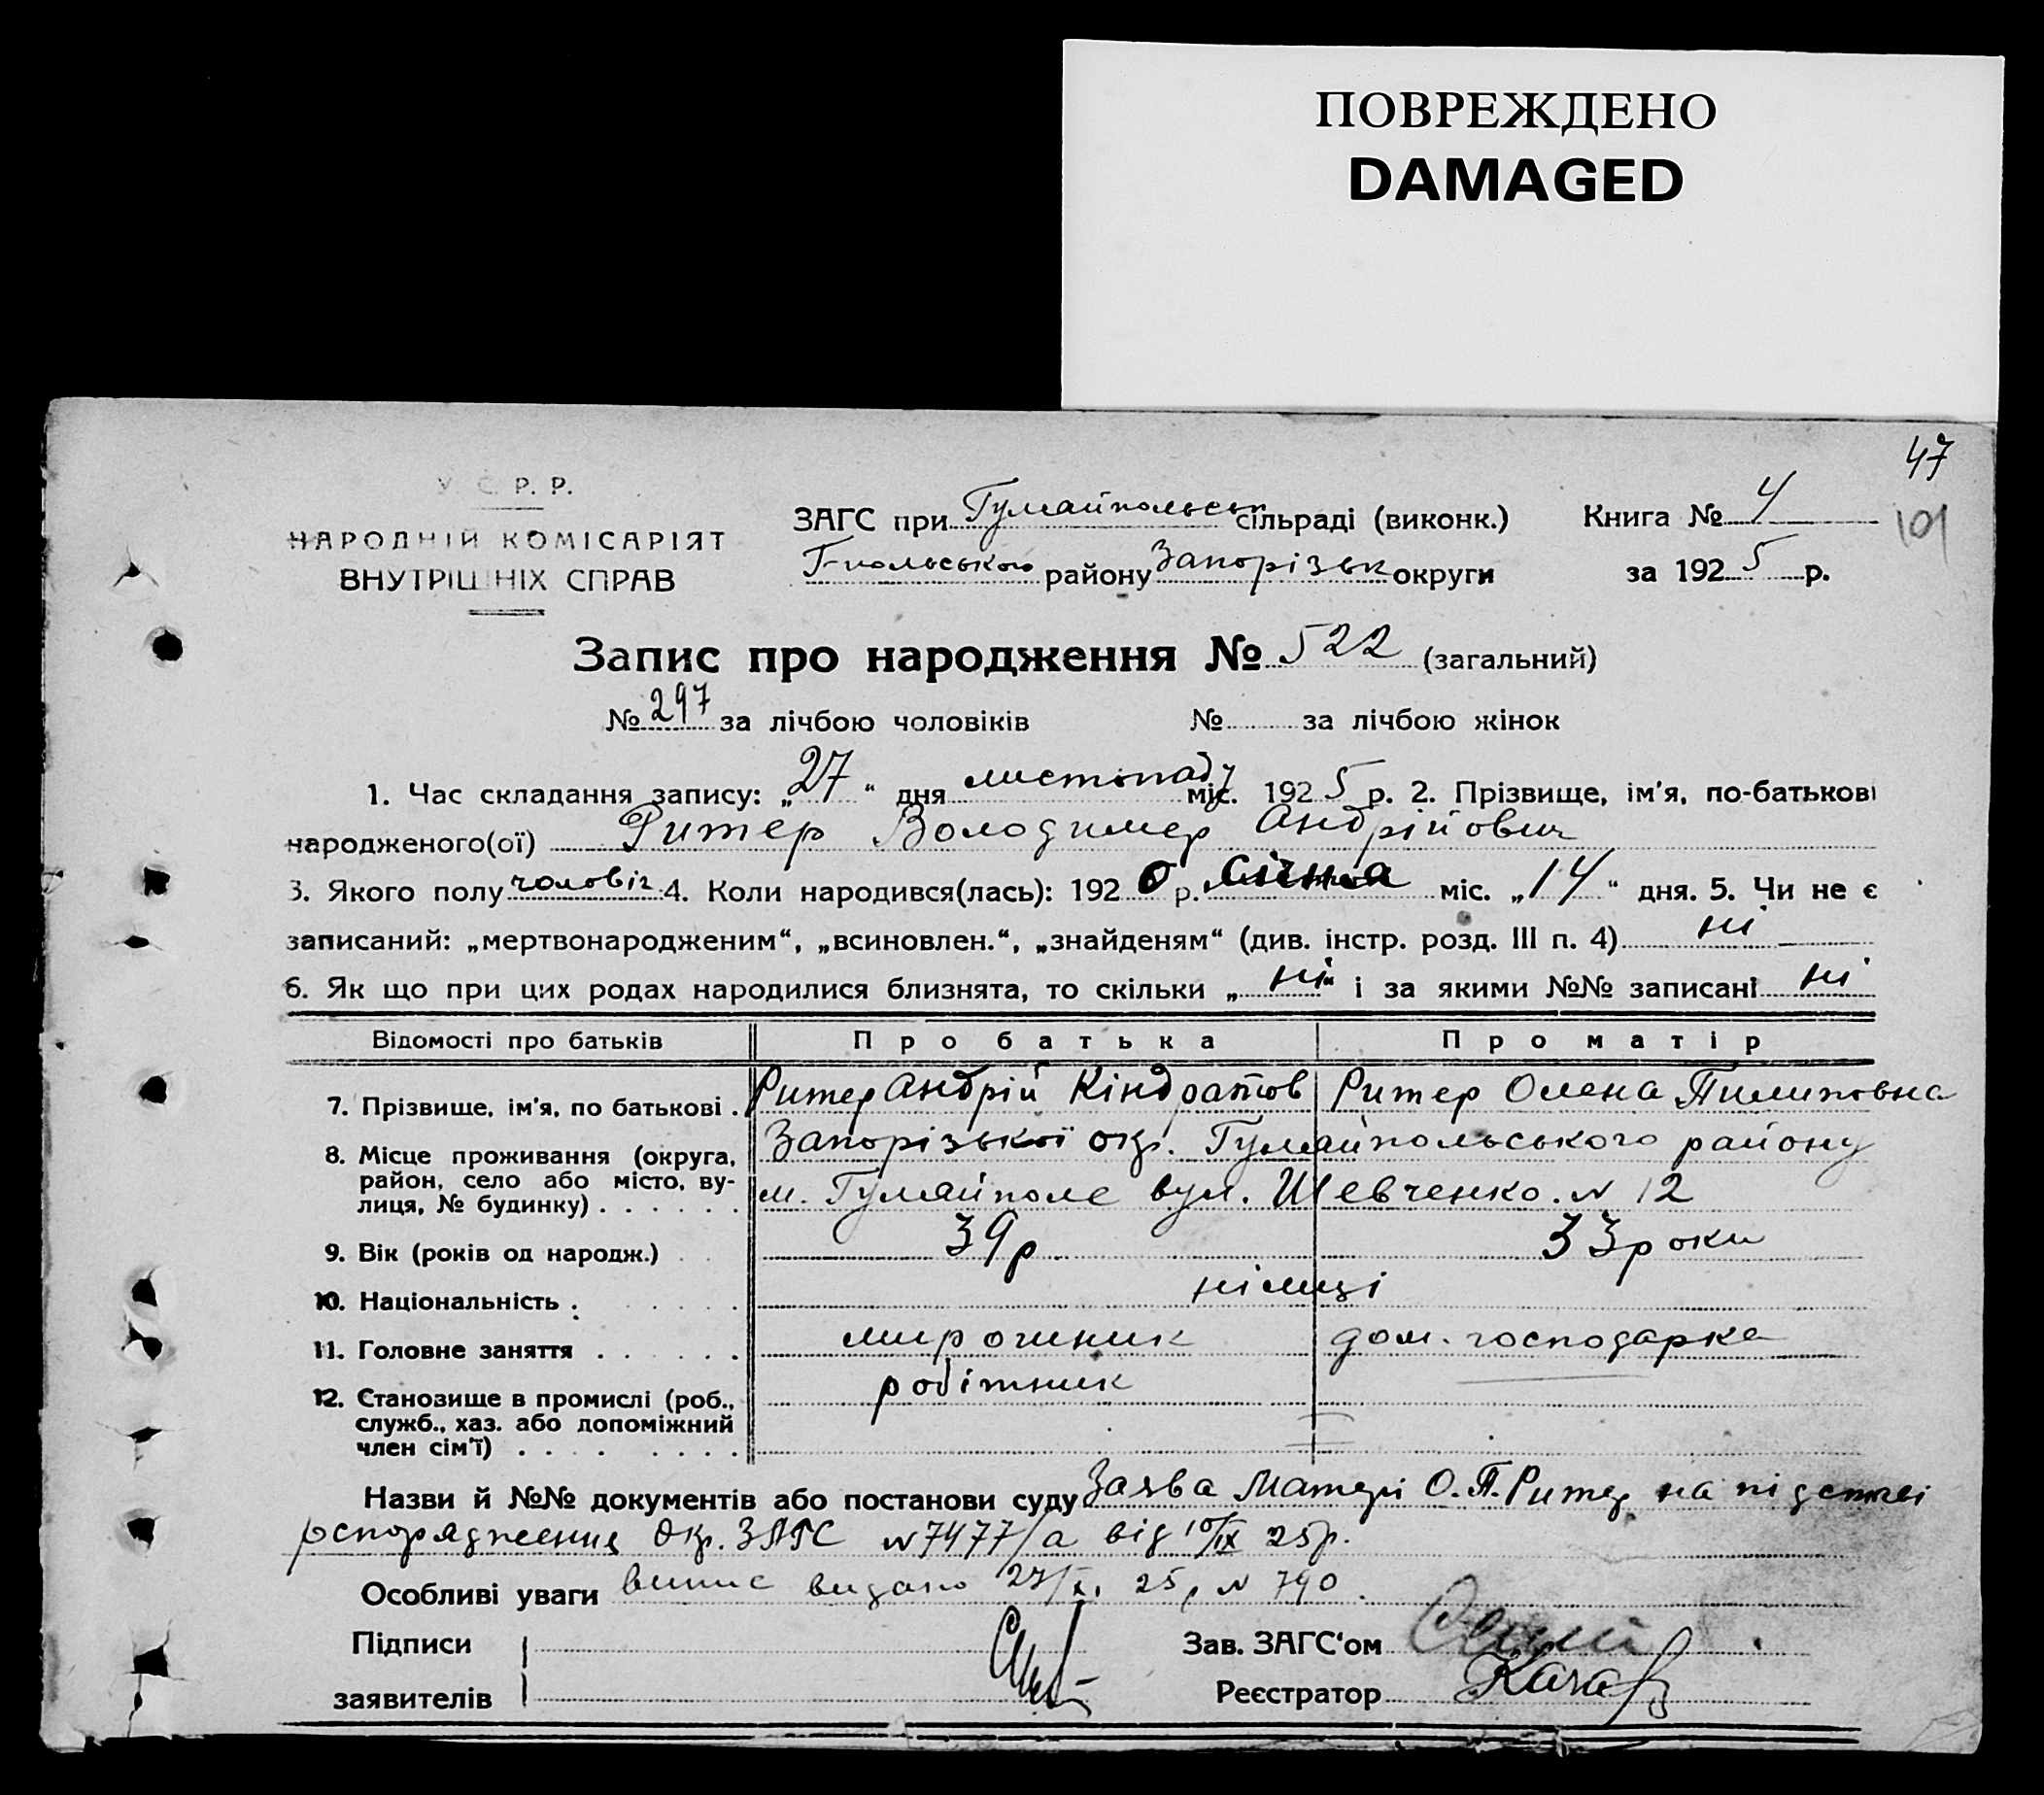 ПОВРЕЖДЕНО
DAMAGED
47
101
У. С. Р. Р.
НАРОДНІЙ КОМІСАРІЯТ
ВНУТРІШНІХ СПРАВ
ЗАГС при Гуляйпольськ сільраді (виконк.) Книга № 4
Г-польського району Запорізьк округи за 1925 р.
Запис про народження № 522 (загальний)
№ 297 за лічбою чоловіків № за лічбою жінок
1. Час складання запису: „27“ дня листопаду міс. 1925 р. 2. Прізвище, ім'я, по-батькові
народженого(ої) Ритер Володимер Андрійович
3. Якого полу чоловіч. 4. Коли народився(лась): 1920 р. січня міс. „14“ дня. 5. Чи не є
записаний: „мертвонародженим“, „всиновлен.“, „знайденям“ (див. інстр. розд. III п. 4) ні
6. Як що при цих родах народилися близнята, то скільки „ні“ і за якими №№ записані ні
Відомості про батьків Про батька Про матір
7. Прізвище, ім'я, по батькові . Ритер Андрій Кіндратов Ритер Олена Пилиповна
8. Місце проживання (округа, район, село або місто, вулиця, № будинку) . . . . . . Запорізької окр. Гуляйпольського району
м. Гуляйполе вул. Шевченко. № 12
9. Вік (років од народж.) 39 р 33 роки
10. Національність . німці
11. Головне заняття . . . . . . мирошник дом. господарка
12. Становище в промислі (роб., служб., хаз. або допоміжний член сім'ї) . . . . робітник
Назви й №№ документів або постанови суду Заява Матері О. П. Ритер на підставі
роспорядження Окр. ЗАГС № 7477/а від 10/IX 25р.
Особливі уваги випис видано 27/XI 25 р № 790.
Підписи
заявителів
Зав. ЗАГС'ом
Реєстратор